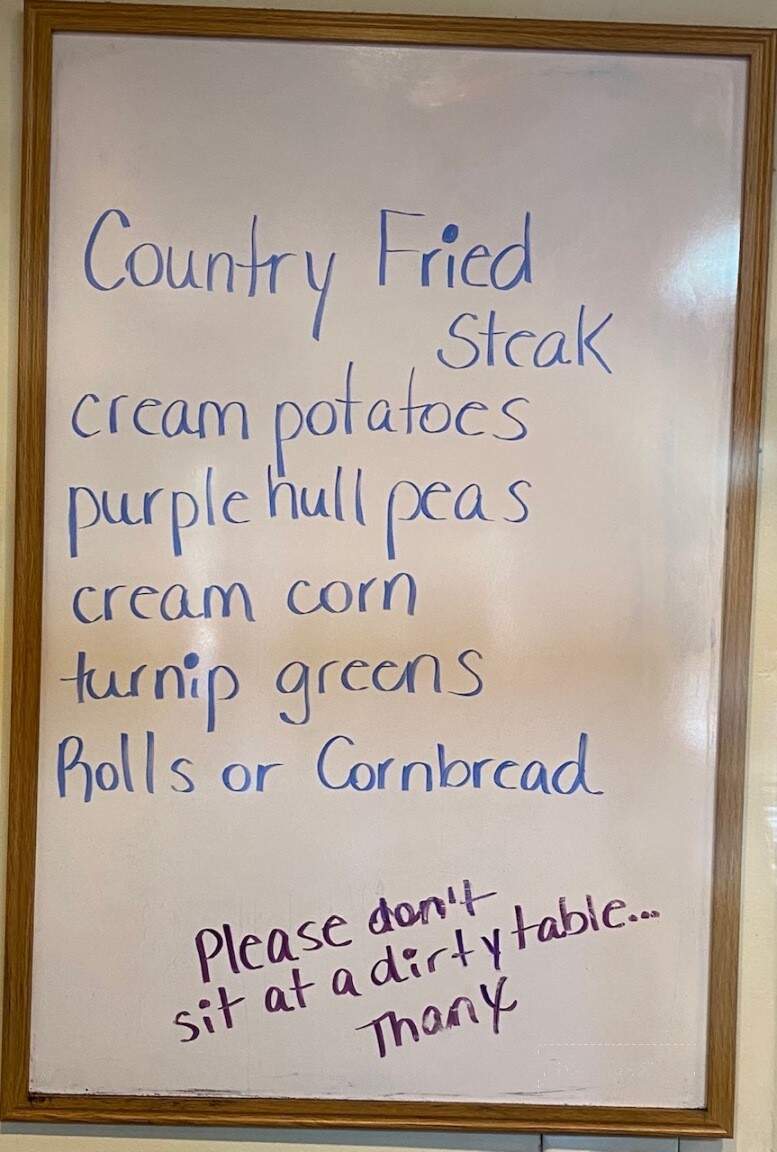 Country Fried
Steak
cream potatoes
purple hull peas
cream corn
turnip greens
Rolls or Cornbread
Please don't
sit at a dirty table...
Thank